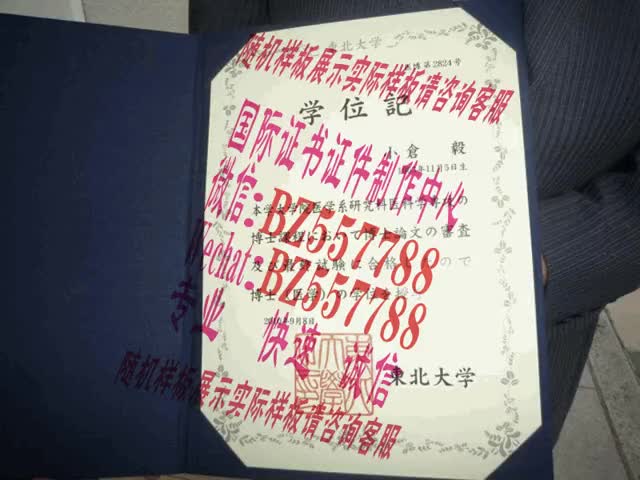 東北大学
随机样板展示实际样板请咨询客服
第2824号
学位記
小倉 毅
国际证书证件制作中心
11月5日生
微信:BZ557788
本学大学院医学系研究科医科学専攻の
博士課程において博士論文の審査
及び最終試験に合格
ので
Wechat:BZ557788
博士(医学)の学位を授
专业 快速 诚信
2010年9月8日
東北大学
随机样板展示实际样板请咨询客服